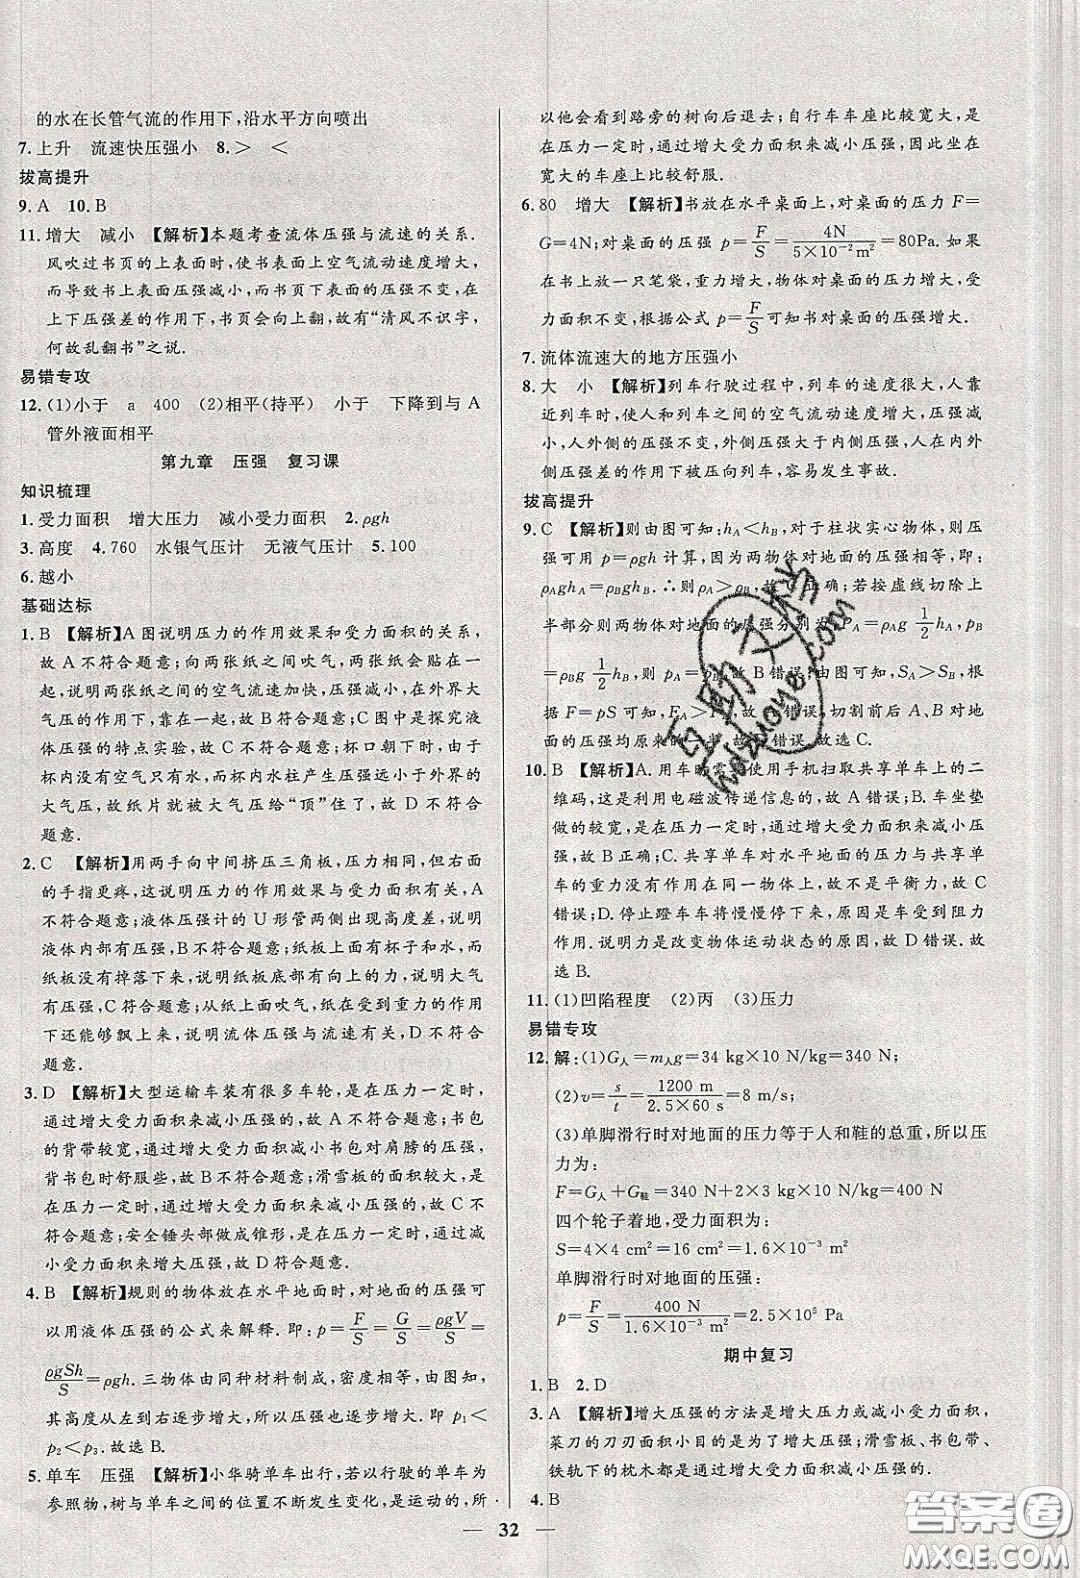 的水在长管气流的作用下,沿水平方向喷出
7.上升　流速快压强小　8.＞　＜
拔高提升
9.A　10.B
11.增大　减小　【解析】本题考查流体压强与流速的关系.
风吹过书页的上表面时,使书表面上空气流动速度增大,
而导致书上表面压强减小,而书页下表面压强不变,在
上下压强差的作用下,书页会向上翻,故有“清风不识字,
何故乱翻书”之说.
易错专攻
12.(1)小于　a　400　(2)相平(持平)　小于　下降到与A
管外液面相平
第九章　压强　复习课
知识梳理
1.受力面积　增大压力　减小受力面积　2.ρgh
3.高度　4.760　水银气压计　无液气压计　5.100
6.越小
基础达标
1.B　【解析】A图说明压力的作用效果和受力面积的关系,
故A不符合题意;向两张纸之间吹气,两张纸会贴在一
起,说明两张纸之间的空气流速加快,压强减小,在外界大
气压的作用下,靠在一起,故B符合题意;C图中是探究液
体压强的特点实验,故C不符合题意;杯口朝下时,由于
杯内没有空气只有水,而杯内水柱产生压强远小于外界的
大气压,故纸片就被大气压给“顶”住了,故D不符合
题意.
2.C　【解析】用两手向中间挤压三角板,压力相同,但右面
的手指更疼,这说明压力的作用效果与受力面积有关,A
不符合题意;液体压强计的U形管两侧出现高度差,说明
液体内部有压强,B不符合题意;纸板上面有杯子和水,而
纸板没有掉落下来,说明纸板底部有向上的力,说明大气
有压强,C符合题意;从纸上面吹气,纸在受到重力的作用
下还能够飘上来,说明流体压强与流速有关,D不符合
题意.
3.D　【解析】大型运输车装有很多车轮,是在压力一定时,
通过增大受力面积来减小压强的,故A不符合题意;书包
的背带较宽,通过增大受力面积来减小书包对肩膀的压强,
背书包时舒服些,故B不符合题意;滑雪板的面积较大,是
在压力一定时,通过增大受力面积来减小压强的,故C不
符合题意;安全锤头部做成锥形,是在压力一定时,通过减
小受力面积来增大压强的,故D符合题意.
4.B　【解析】规则的物体放在水平地面时,对地面的压强可
以用液体压强的公式来解释.即:p=F/S=G/S=ρgV/S=
ρgSh/S=ρgh.三物体由同种材料制成,密度相同,由于
其高度从左到右逐步增大,所以压强也逐步增大.即p₁＜
p₂＜p₃.故选B.
5.单车　压强　【解析】小华骑单车出行,若以行驶的单车为
参照物,树与单车之间的位置不断发生变化,是运动的,所
以他会看到路旁的树向后退去;自行车车座比较宽大,是
在压力一定时,通过增大受力面积来减小压强,因此坐在
宽大的车座上比较舒服.
6.80　增大　【解析】书放在水平桌面上,对桌面的压力F=
G=4N;对桌面的压强p=F/S=4N/5×10⁻²m²=80Pa.如果
在书上放一只笔袋,重力变大,物体对桌面的压力增大,受
力面积不变,根据公式p=F/S可知书对桌面的压强增大.
7.流体流速大的地方压强小
8.大　小　【解析】列车行驶过程中,列车的速度很大,人靠
近列车时,使人和列车之间的空气流动速度增大,压强减
小,人外侧的压强不变,人外侧压强大于内侧压强,人在内外
侧压强差的作用下被压向列车,容易发生事故.
拔高提升
9.C　【解析】则由图可知;hA＜hB,对于柱状实心物体,则压
强可用p=ρgh计算,因为两物体对地面的压强相等,即:
ρAghA=ρBghB.∴则ρA＞ρB,故C正确;若按虚线切除上
半部分则两物体对地面的压强分别为pA=ρAg 1/2 hA,pB
=ρBg 1/2 hB,则pA=pB,故B错误;由图可知,SA＞SB,根
据F=pS可知,FA＞FB,故A错误,切割前后A、B对地
面的压强均原来的一半,故D错误.故选C.
10.B　【解析】A.用车时需要使用手机扫取共享单车上的二
维码,这是利用电磁波传递信息的,故A错误;B.车坐垫
做的较宽,是在压力一定时,通过增大受力面积来减小压
强,故B正确;C.共享单车对水平地面的压力与共享单
车的重力没有作用在同一物体上,故不是平衡力,故C
错误;D.停止蹬车车将慢慢停下来,是由于受到阻力
作用.说明力是改变物体运动状态的原因,故D错误.故
选B.
11.(1)凹陷程度　(2)丙　(3)压力
易错专攻
12.解:(1)G人=m人g=34 kg×10 N/kg=340 N;
(2)v=s/t=1200 m/2.5×60 s=8 m/s;
(3)单脚滑行时对地面的压力等于人和鞋的总重,所以压
力为:
F=G人+G鞋=340 N+2×3 kg×10 N/kg=400 N
四个轮子着地,受力面积为:
S=4×4 cm²=16 cm²=1.6×10⁻³ m²
单脚滑行时对地面的压强:
p=F/S=400 N/1.6×10⁻³ m²=2.5×10⁵ Pa
期中复习
1.B　2.D
3.A　【解析】增大压强的方法是增大压力或减小受力面积,
菜刀的刀刃面积小目的是为了增大压强;滑雪板、书包带、
铁轨下的枕木都是通过增大受力面积来减小压强的.
4.B
32
答案圈
MXQE.COM